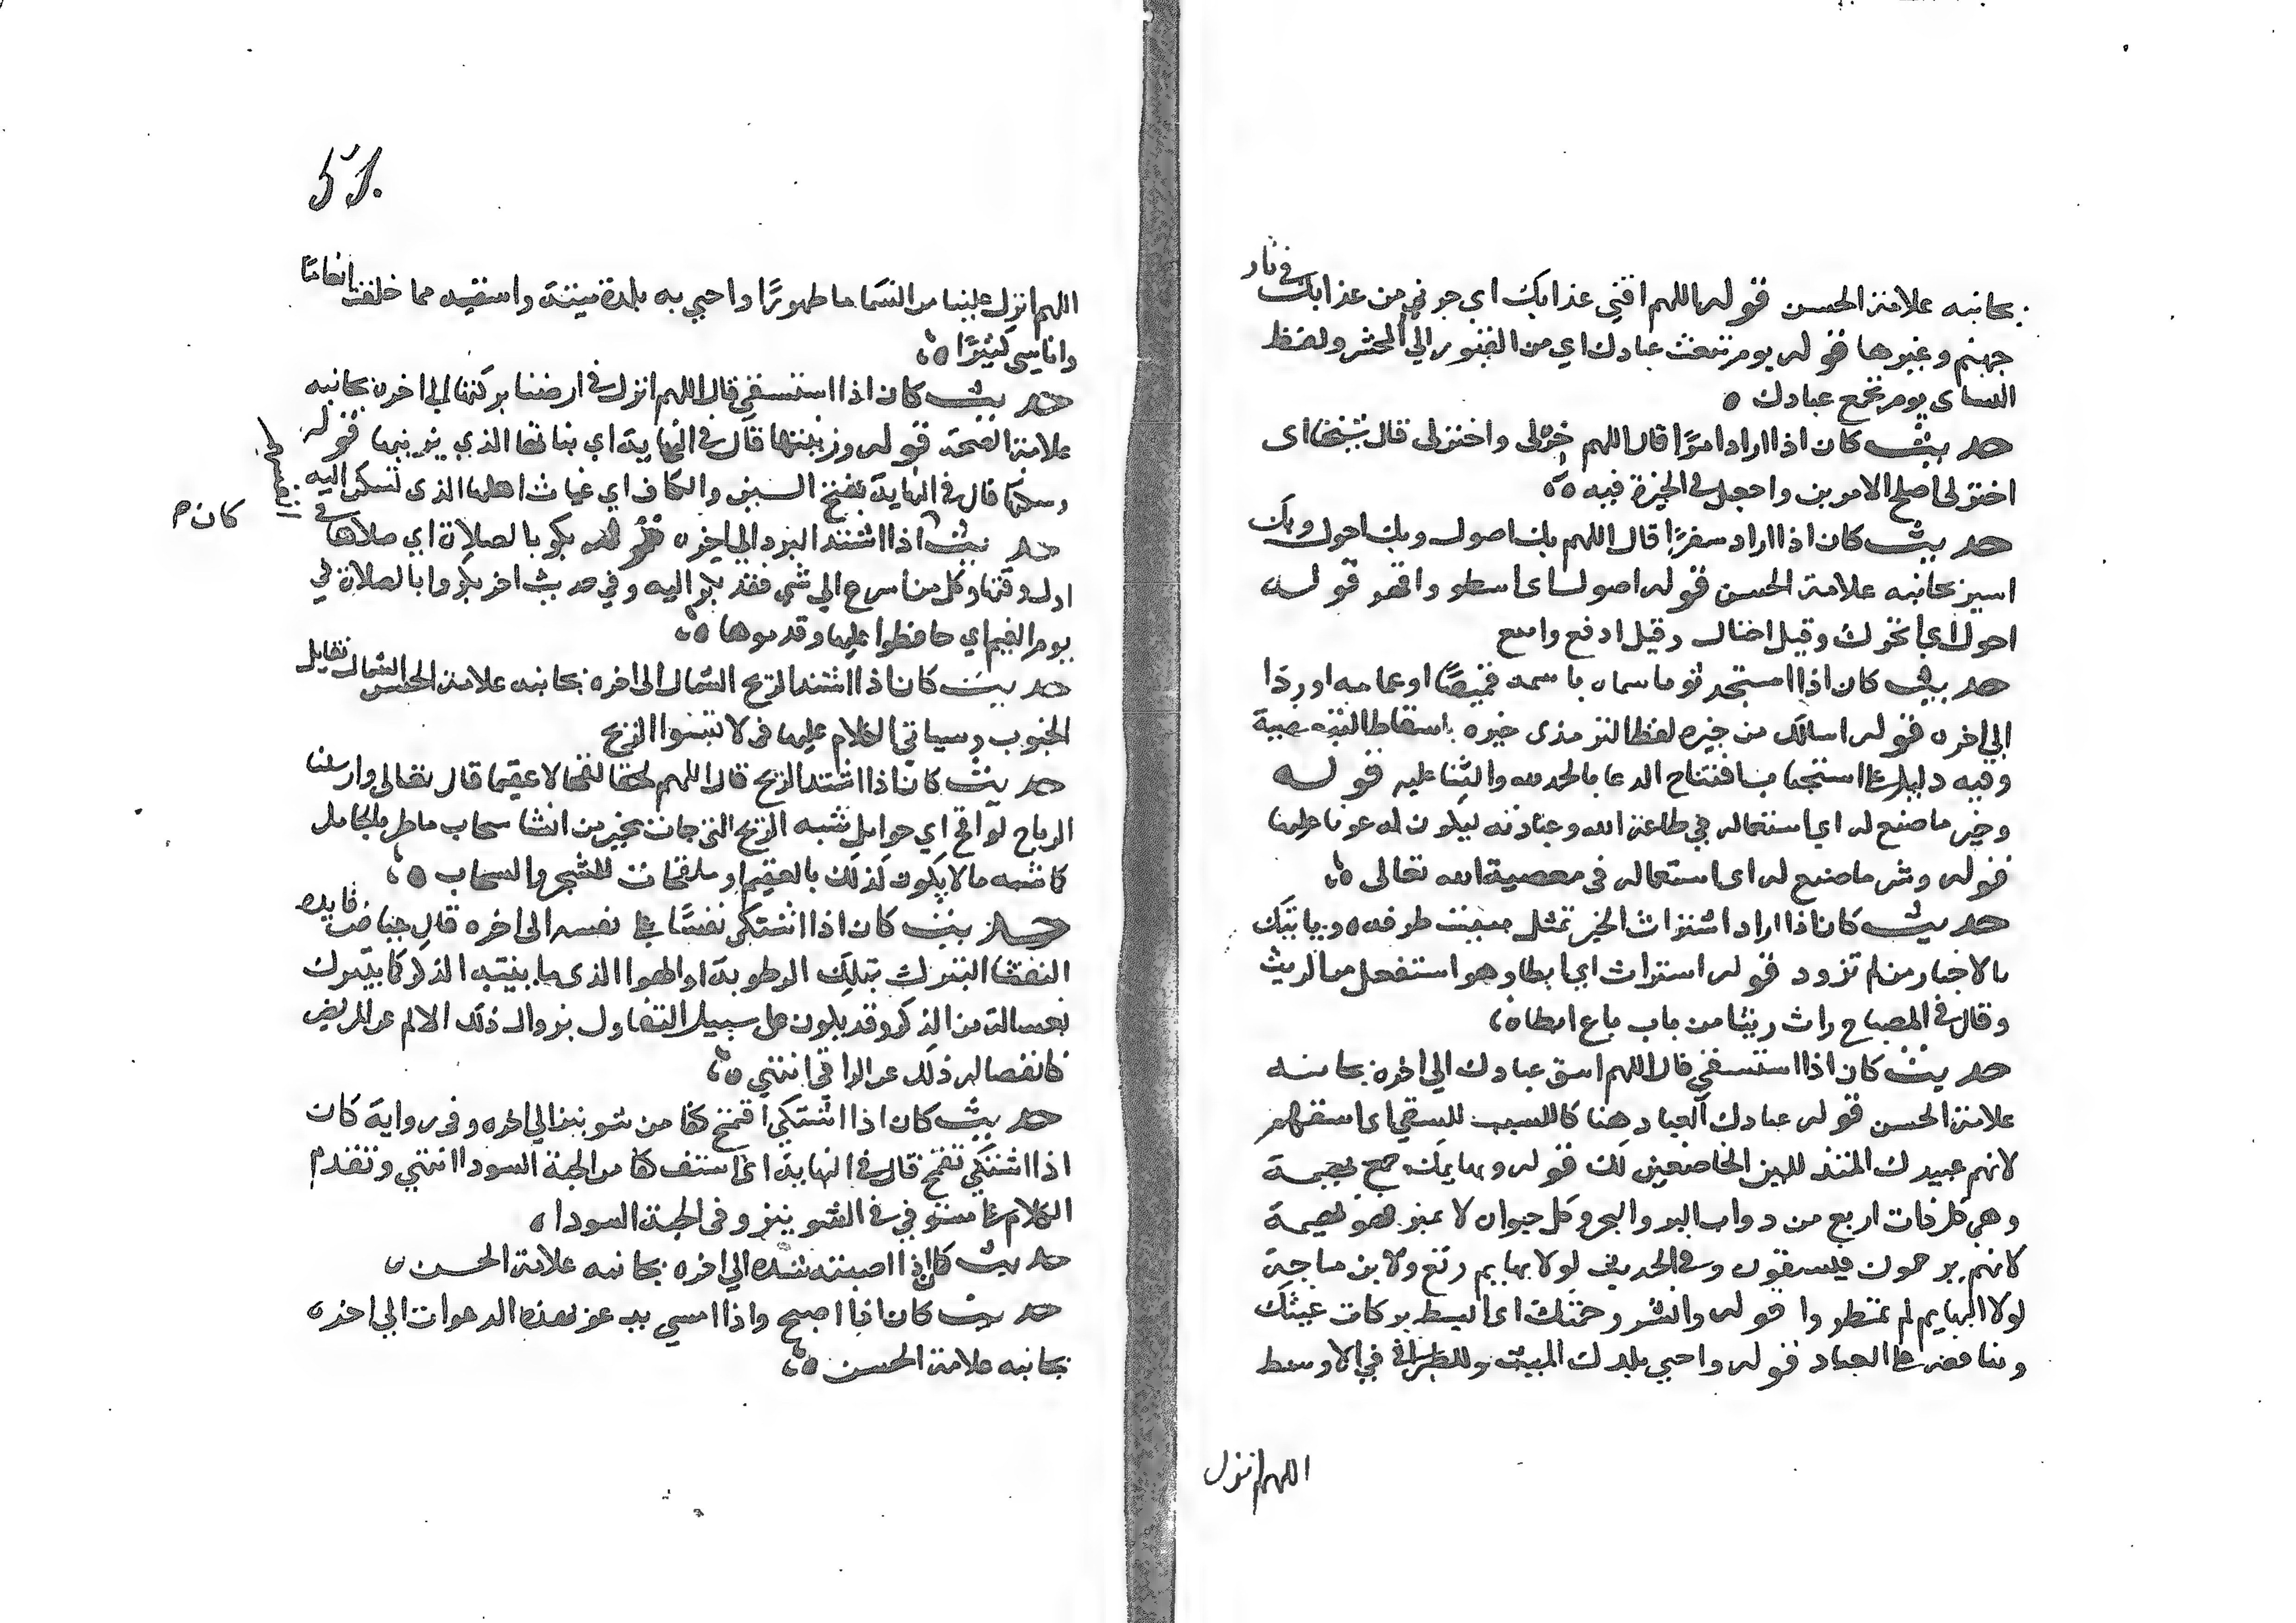 بجانبه علامة الحسن قوله اللهم اقني عذابك اي جرني من عذابك في نار
جهنم وغيرها قوله يوم تبعث عبادك اي من القبور الي المحشر ولفظ
النساى يوم تجمع عبادك ه
حديث كان اذا اراد امرًا قال اللهم خرلى واخترلى قال شيخنا اى
اخترلى اصلح الامرين واجعل لى الخيرة فيه ه
حديث كان اذا اراد سفرًا قال اللهم بك اصول وبك احول وبك
اسير بجانبه علامة الحسن قوله اصول اى اسطو واقهر قوله
احول اى اتحرك وقيل احتال وقيل ادفع وامنع
حديث كان اذا استجد ثوبا سماه باسمه قميصًا او عمامه او ردَا
الي اخره قوله اسالك من خيره لفظ الترمذى خيره باسقاط
وفيه دليل على استحباب افتتاح الدعا بالحمد لله والثنا عليه قوله
وخير ما صنع له اي استعماله في طاعة الله وعبادته ليكون له عونا عليها
قوله وشر ما صنع له اى استعماله فى معصية الله تعالى ه
حديث كان اذا اراد استراث الخبر تمثل ببيت طرفه ه ويأتيك
بالاخبار من لم تزود قوله استراث اي ابطا وهو استفعل من الريث
وقال في المصباح راث ريثا من باب باع ابطا ه
حديث كان اذا استسقي قال اللهم اسق عبادك الي اخره بجانبه
علامة الحسن قوله عبادك العباد هنا كالسبب للسقي اى اسقهم
لانهم عبيدك المتذللين الخاضعين لك قوله وبهايمك جمع بهيمة
وهي كل ذات اربع من دواب البر والبحر وكل حيوان لا يميز فهو بهيمة
لانهم يرحمون فيسقون وفي الحديث لولا بهايم رتع ولابن ماجة
لولا البهايم لم تمطروا قوله وانشر رحمتك اى ابسط بركات غيثك
ومنافعه على العباد قوله واحيي بلدك الميت وللطبراني في الاوسط
اللهم انزل
51.
اللهم انزل علينا من السما ما طهورًا واحيي به بلدة ميتة واسقيه مما خلقت انعامًا
واناسى كثيرًا ه
حديث كان اذا استسقي قال اللهم انزل في ارضنا بركتها الي اخره بجانبه
علامة الصحة قوله وزينتها قال في النهاية اي نباتها الذي يزينها قوله
وسكنها قال في النهاية بفتح السين والكاف اي غياث اهلها الذى تسكن اليه
كان م
حديث اذا اشتد البرد الي اخره قوله بكر بالصلاة اي صلاها في
اول وقتها وكل من اسرع الي شي فقد بكر اليه وفي حديث اخر بكروا بالصلاة في
يوم الغيم اي حافظوا عليها وقدموها ه
حديث كان اذا اشتد الريح الشمال الى اخره بجانبه علامة الحسن الشمال تقابل
الجنوب وسياتي الكلام عليها فى لا تسبوا الريح
حديث كان اذا اشتد الريح قال اللهم لقحا لا عقيما قال تعالى وارسلنا
الرياح لواقح اي حوامل شبه الريح التى جات بخير من انشا سحاب ماطر بالحامل
كما شبه ما لا يكون كذلك بالعقيم او ملقحات للشجر والسحاب ه
حديث كان اذا اشتكى نفث على نفسه الى اخره قال عياض فايده
النفث التبرك بتلك الرطوبة او الهوا الذى ماسه الذكر كما يتبرك
بغسالة من الذكر وقد يكون على سبيل التفاول بزوال ذلك الالم عن المريض
كانفصال ذلك عن الراقي انتهي ه
حديث كان اذا اشتكي اقتمح كفا من شونيز الي اخره وفى رواية كان
اذا اشتكي تقمح قال في النهاية اى استف كفا من الحبة السودا انتهي وتقدم
الكلام مستوفي في الشونيز وفى الحبة السودا ه
حديث كان اذا اصابته شده الي اخره بجانبه علامة الحسن ه
حديث كان اذا اصبح واذا امسي يدعو بهذه الدعوات الي اخره
بجانبه علامة الحسن ه